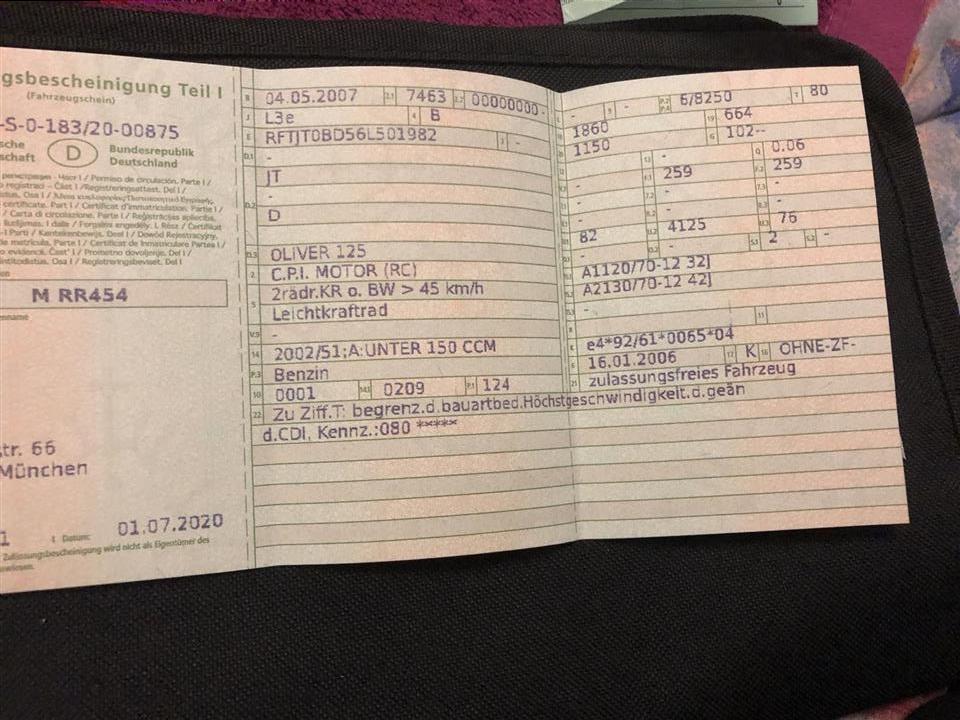 gsbescheinigung Teil I
(Fahrzeugschein)
-S-0-183/20-00875
sche
schaft
D
Bundesrepublik
Deutschland
M RR454
tr. 66
München
1
Datum:
01.07.2020
Zulassungsbescheinigung wird nicht als Eigentümer des
B 04.05.2007 2.1 7463 2.2 00000000-
J L3e 4 B
E RFTJT0BD56L501982 3 -
D.1 -
JT
D.2 -
D
-
D.3 OLIVER 125
2 C.P.I. MOTOR (RC)
5 2rädr.KR o. BW > 45 km/h
Leichtkraftrad
V.9 -
14 2002/51;A:UNTER 150 CCM
P.3 Benzin
10 0001 14.1 0209 P.1 124
22 Zu Ziff.T: begrenz.d.bauartbed.Höchstgeschwindigkeit.d.geän
d.CDI, Kennz.:080 *****
- 9 - P.2 P.4 6/8250 T 80
1860 19 664
1150 G 102--
- 13 - Q 0.06
- F.1 259 F.2 259
- 7.2 - 7.3 -
- 8.2 - 8.3 -
82 U.2 4125 U.3 76
- O.2 - S.1 2 S.2 -
A1120/70-12 32J
A2130/70-12 42J
-
R - 11
K e4*92/61*0065*04
6 16.01.2006 17 K 16 OHNE-ZF-
21 zulassungsfreies Fahrzeug